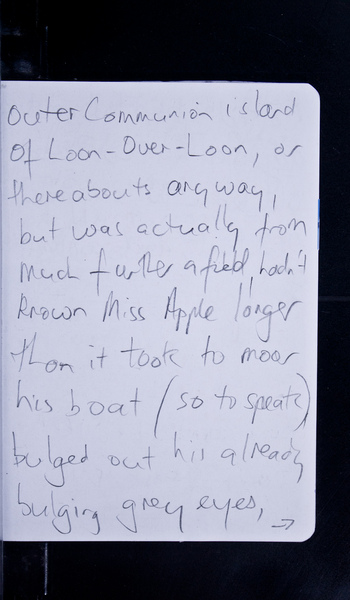 outer Communion island
of Loon-Over-Loon, or
thereabouts anyway,
but was actually from
much further afield, hadn't
known Miss Apple longer
than it took to moor
his boat (so to speak)
bulged out his already
bulging grey eyes, →